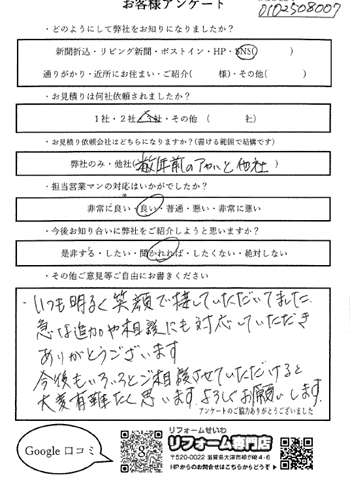 お客様アンケート
0102508007
・どのようにして弊社をお知りになりましたか?
新聞折込・リビング新聞・ポストイン・HP・SNS( )
通りがかり・近所にお住まい・ご紹介( 様)・その他( )
・お見積りは何社依頼されましたか?
1社・2社・3社・その他( 社)
・お見積り依頼会社はどちらになりますか?(書ける範囲で結構です)
弊社のみ・他社(数年前のアヤハと他社
・担当営業マンの対応はいかがでしたか?
非常に良い・良い・普通・悪い・非常に悪い
・今後お知り合いに弊社をご紹介しようと思いますか?
是非する・したい・聞かれれば・したくない・絶対しない
・その他ご意見等ご自由にお書きください
・いつも明るく笑顔で接していただいてました。
急な追加や相談にも対応していただき
ありがとうございます
今後もいろいろとご相談させていただけると
大変有難たく思います。よろしくお願いします。
アンケートのご協力ありがとうございました
Google 口コミ
リフォームせいわ
リフォーム専門店
〒520-0022 滋賀県大津市柳が崎4-6
HPからのお問合せはこちらからどうぞ